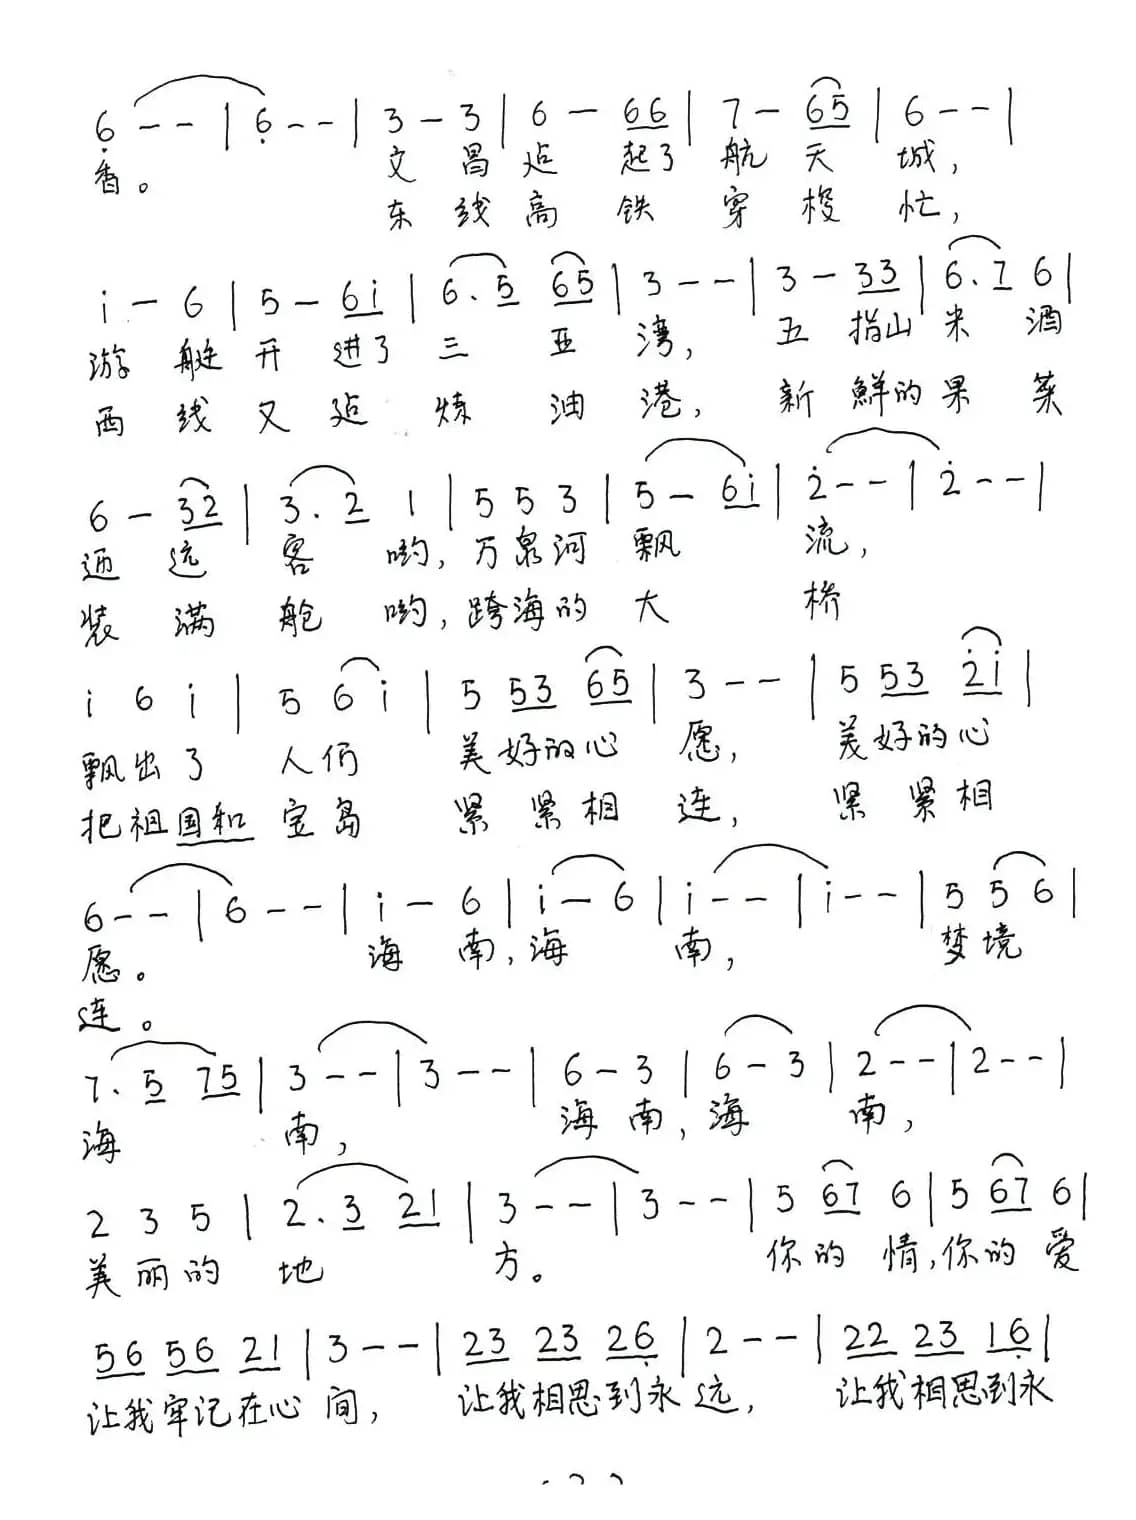 6 - - | 6 - - | 3 - 3 | 6 - 66 | 7 - 65 | 6 - - |
香。 文 昌 造 起了 航 天 城,
东 线 高 铁 穿 梭 忙,
i - 6 | 5 - 6i | 6. 5 65 | 3 - - | 3 - 33 | 6. 7 6 |
游 艇 开 进了 三 亚 湾, 五 指山 米 酒
西 线 又 造 炼 油 港, 新 鲜的 果 菜
6 - 32 | 3. 2 1 | 5 5 3 | 5 - 6i | 2̇ - - | 2̇ - - |
迎 远 客 哟, 万泉河 飘 流,
装 满 舱 哟, 跨海的 大 桥
i 6 i | 5 6 i | 5 53 65 | 3 - - | 5 53 2̇i |
飘出了 人们 美好的心 愿, 美好的心
把祖国和 宝岛 紧 紧相 连, 紧 紧相
6 - - | 6 - - | i - 6 | i - 6 | i - - | i - - | 5 5 6 |
愿。 海 南, 海 南, 梦境
连。
7. 5 75 | 3 - - | 3 - - | 6 - 3 | 6 - 3 | 2 - - | 2 - - |
海 南, 海 南, 海 南,
2 3 5 | 2. 3 21 | 3 - - | 3 - - | 5 67 6 | 5 67 6 |
美丽的 地 方。 你的 情, 你的 爱
56 56 21 | 3 - - | 23 23 26 | 2 - - | 22 23 16 |
让我牢记在心 间, 让我相思到永 远, 让我相思到永